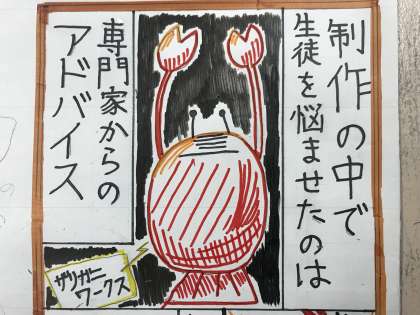 制作の中で
生徒を悩ませたのは
専門家からの
アドバイス
ザリガニ
ワークス